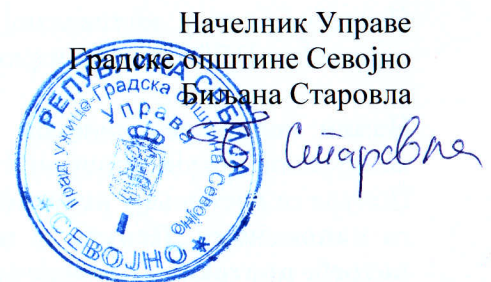 Начелник Управе
Градске општине Севојно
Биљана Старовла
Б Старовла
РЕПУБЛИКА СРБИЈА
Град Ужице-Градска општина Севојно
Управа
I
* СЕВОЈНО *